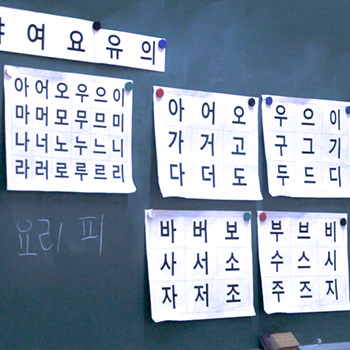 야 여 요 유 의
아 어 오 우 으 이
마 머 모 무 므 미
나 너 노 누 느 니
라 러 로 루 르 리
아 어 오
가 거 고
다 더 도
우 으 이
구 그 기
두 드 디
요리 피
바 버 보
사 서 소
자 저 조
부 브 비
수 스 시
주 즈 지